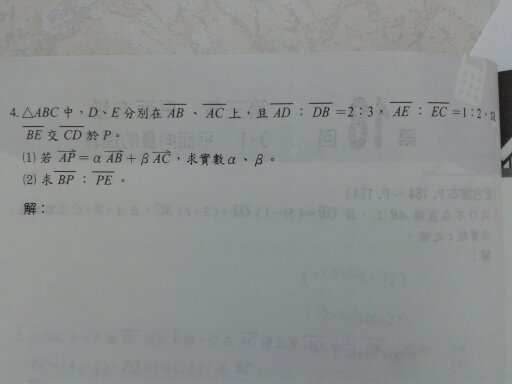 4. △ABC 中，D、E 分別在 AB 、 AC 上，且 AD ： DB =2：3， AE ： EC =1：2，設
BE 交 CD 於 P。
(1) 若 AP = α AB + β AC ，求實數 α、β。
(2) 求 BP ： PE 。
解：